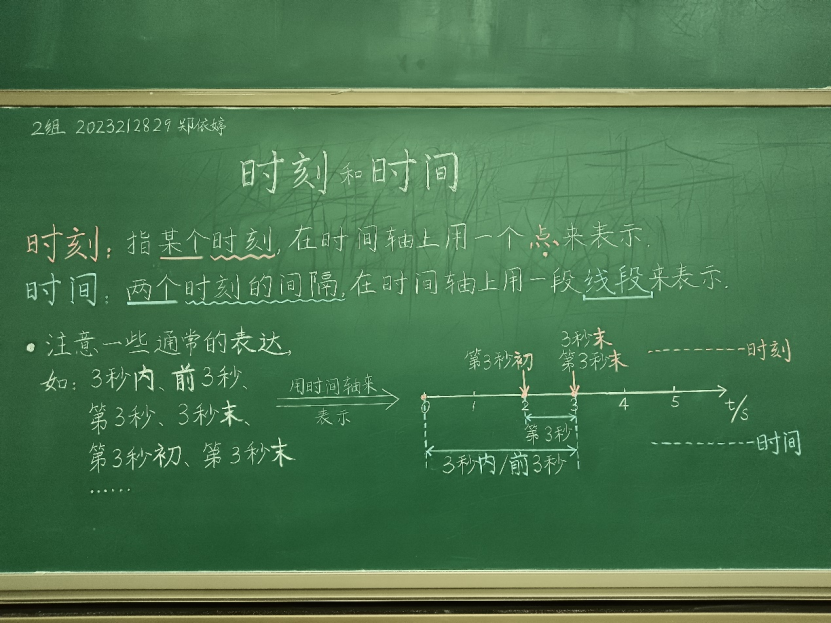 2组 2023212829 郑依婷
时刻和时间
时刻：指某个时刻，在时间轴上用一个点来表示.
时间：两个时刻的间隔，在时间轴上用一段线段来表示.
• 注意一些通常的表达，
如：3秒内、前3秒、
第3秒、3秒末、
第3秒初、第3秒末
......
用时间轴来
表示
3秒末
第3秒初 第3秒末
时刻
0 1 2 3 4 5 t/s
第3秒
时间
3秒内/前3秒